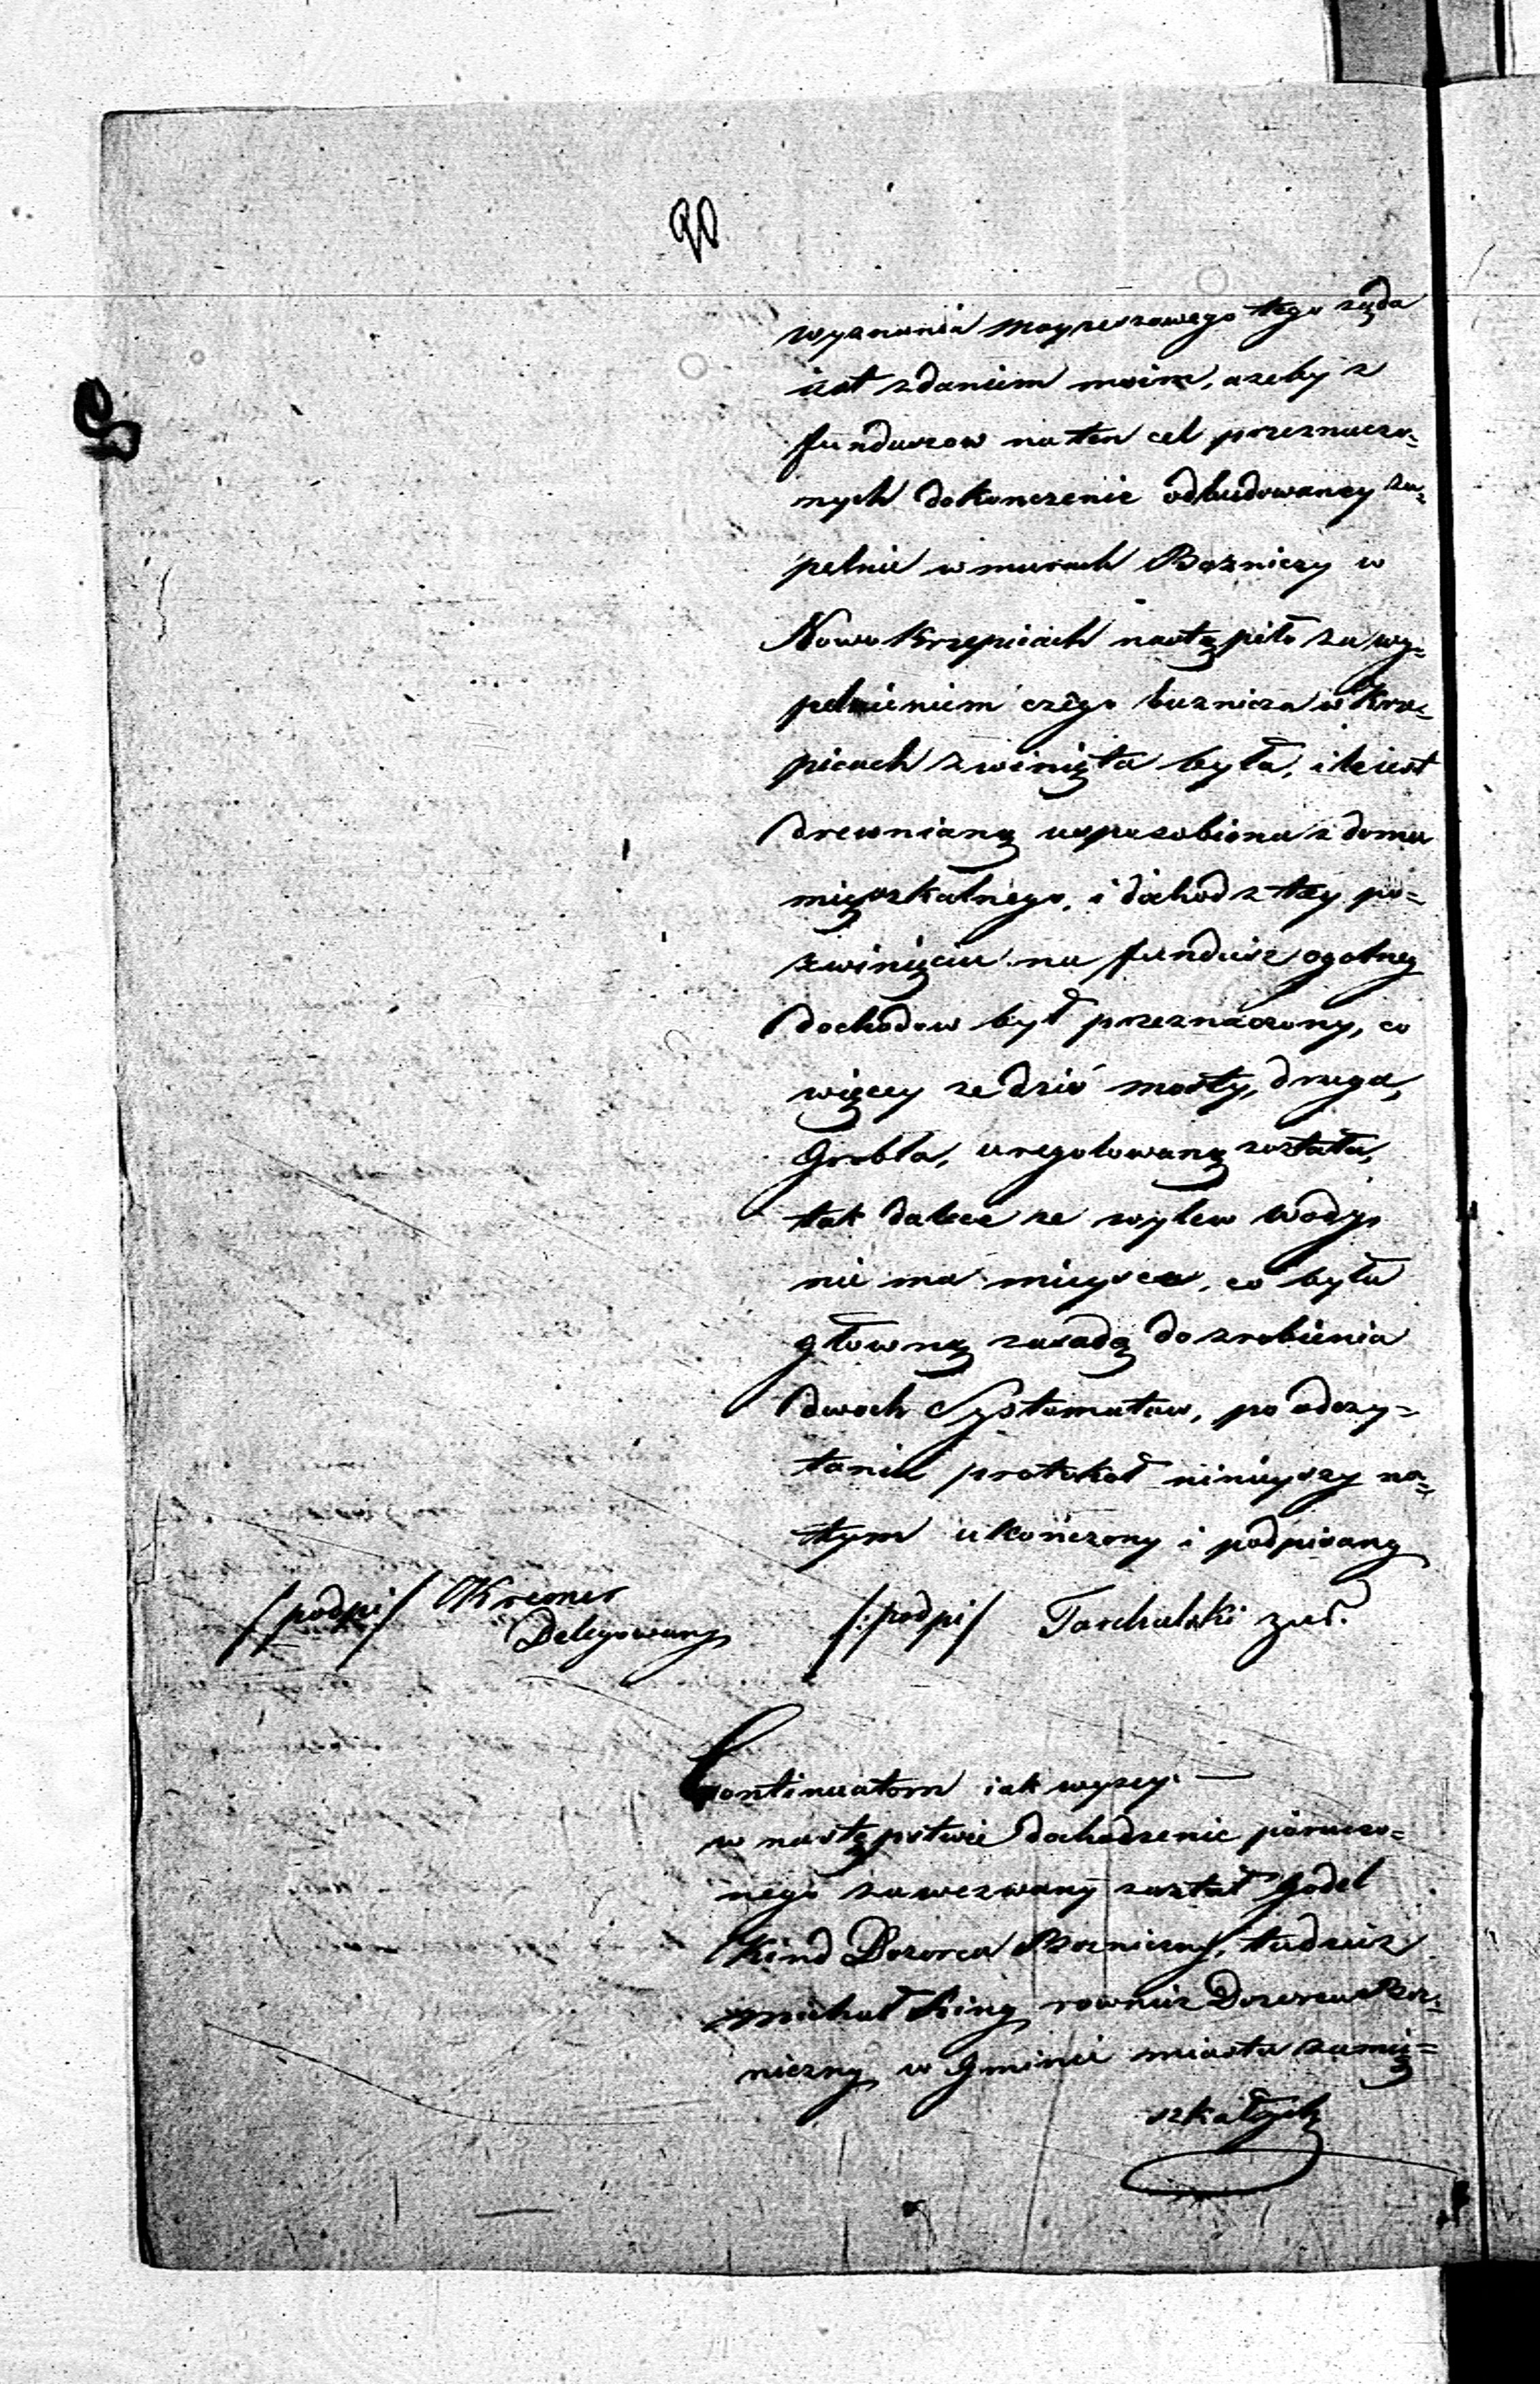 90
wyznania Mojżeszowego tego rządu
iest zdaniem moim, azeby z
funduszow na ten cel przeznaczo=
nych dokonczenie odbudowaney zu=
pelnie w murach Boznicy w
Nowo Krzepicach nastąpiło za wy=
pelnieniem czego buznica w Krze=
picach zwinięta była, ile iest
drewnianą usposobiona z domu
mięszkalnego, i dochod z tey po=
zwinięciu na fundusz ogolney
dochodow był przeznaczony, co
więcey ze dziś mosty, droga,
Grobla, uregolowaną została,
tak dalece ze wylew wody
nie ma mieysca, co była
głowną zasadą do zrobienia
dwoch Systematow, po odczy=
taniu protokoł ninieyszy na=
tym ukończony i podpisany
/podpi/ Kremer
Delegowany
/:podpi/ Tarchalski
Continuatom iak wyzey. —
w następstwie dochodzenie porucza=
nego zawezwany został Godel
Kind Dozorca Bozniczny, tudziez
Michał King rowniez Dozorca Boz=
niczny w Gminie miasta zamię=
szkałych